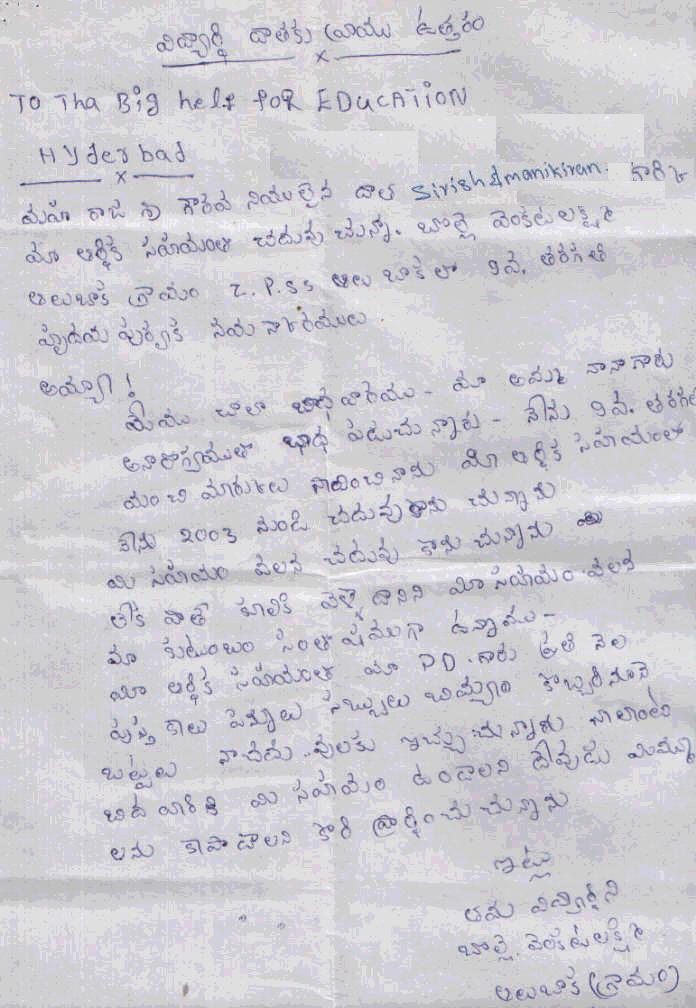 విద్యార్థి దాతకు వ్రాయు ఉత్తరం
x
TO Tha Big help FOR EDUCATION
Hyderbad
x
మహా రాజ శ్రీ గౌరవ నియులైన దాత Sirish & manikiran. గార్కి
మీ ఆర్థిక సహాయంతో చదువు చున్న. బొల్లె వెంకటలక్ష్మి
ఆలుబాక గ్రామం Z.P.SS ఆలుబాకలో 9వ. తరగతి
హృదయ పూర్వక నమస్కారములు.
అయ్యా!
మేము చాలా బీదవారము - మా అమ్మ నాన్నగారు
అనారోగ్యముతో భాధ పడుచున్నారు - నేను 9వ. తరగతిలో
మంచి మార్కులు సాదించినాను మీ ఆర్థిక సహాయంతో
నేను 2003 నుండి చదువుకొను చున్నాను
మి సహాయం వలన చదువు కొను చున్నాను మి
లేక పోతే కూలికి వెళ్ళేదానిని మీ సహాయం వలన
మా కుటుంబం సంతోషముగా ఉన్నాము -
మీ ఆర్థిక సహాయంతో మా P.D. గారు ప్రతి నెల
పుస్తకాలు పెన్నులు సబ్బులు బియ్యం కొబ్బరినూనె
బట్టలు నాచదువులకు ఇచ్చుచున్నారు నాలాంటి
బిదవారికి మి సహాయం ఉండాలని దేవుడు మిమ్మ
లను కాపాడాలని కోరి ప్రార్థించుచున్నాను
ఇట్లు
తమ విద్యార్థిని
బొల్లె. వెంకటలక్ష్మి
ఆలుబాక (గ్రామం)